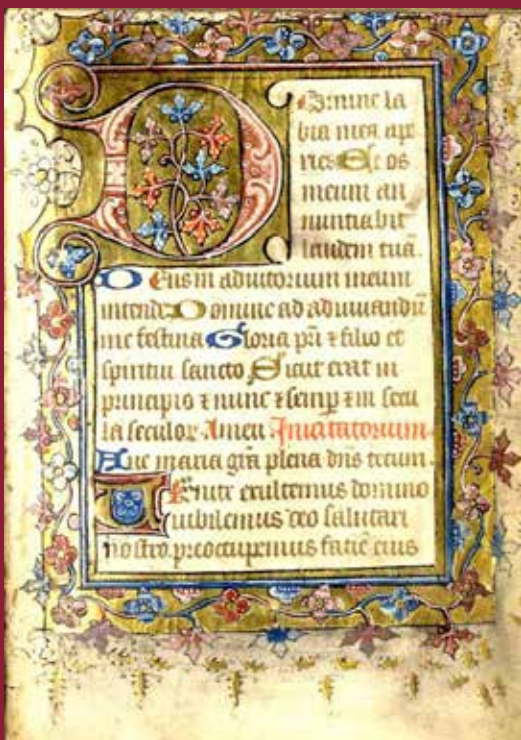 Domine la
bia mea ape
ries Et os
meum an
nuntiabit
laudem tuā.
Deus in adiutorium meum
intende Domine ad adiuuandū
me festina Gloria pr̄i ⁊ filio et
spiritui sancto Sicut erat in
principio ⁊ nunc ⁊ semp̄ ⁊ in secu
la seculoꝝ Amen. Inuitatorium.
Aue maria gr̄a plena dn̄s tecum.
Uenite exultemus domino
iubilemus deo salutari
nostro preoccupemus faciē eius